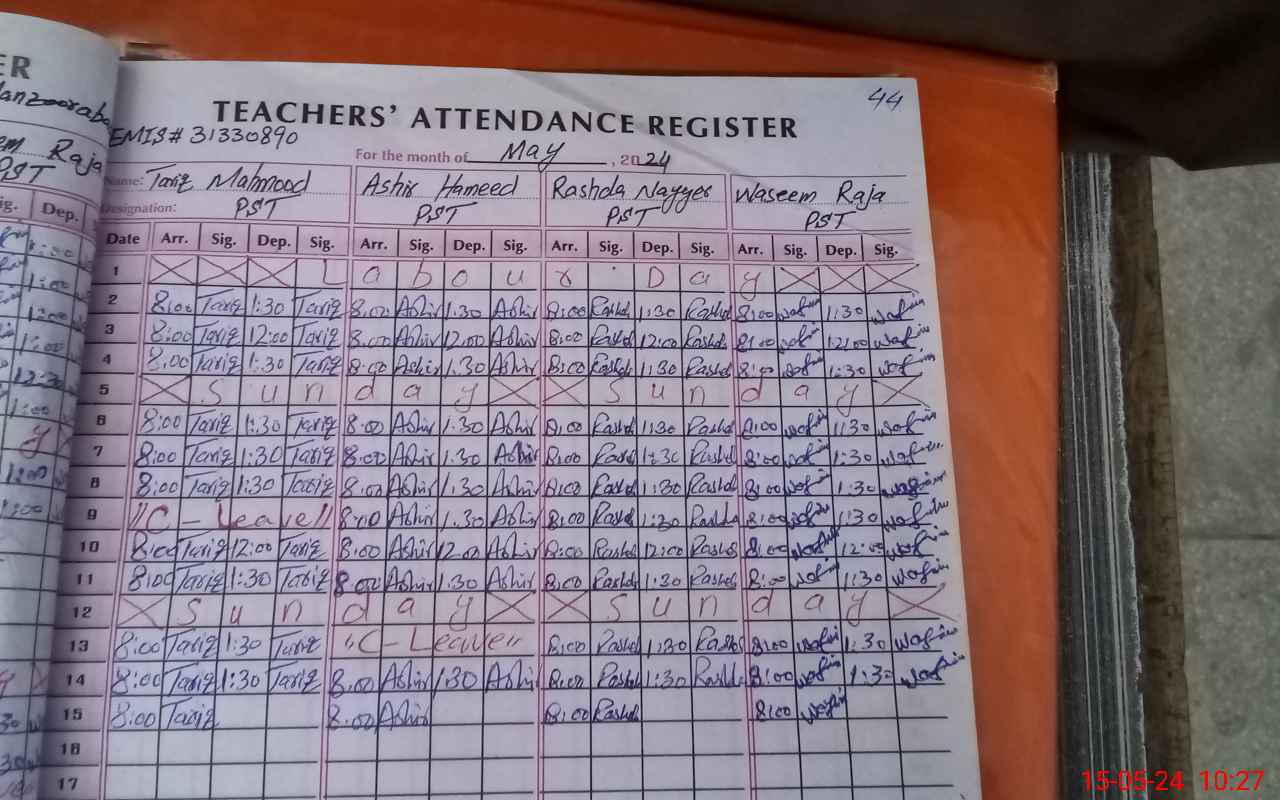 ER
TEACHERS' ATTENDANCE REGISTER
44
EMIS# 31330890
For the month of May, 2024
Raja
PST
Name: Tariq Mahmood Ashir Hameed Rashda Nayyer Waseem Raja
Designation: PST PST PST PST
Dep.
Date Arr. Sig. Dep. Sig. Arr. Sig. Dep. Sig. Arr. Sig. Dep. Sig. Arr. Sig. Dep. Sig.
1 Labour Day
2 8:00 Tariq 1:30 Tariq 8.00 Ashir 1.30 Ashir 8:00 Rashd 1:30 Rashd 8:00 1:30
3 8:00 Tariq 12:00 Tariq 8.00 Ashir 12.00 Ashir 8:00 Rashd 12:00 Rashd 8:00 12:00
4 8:00 Tariq 1:30 Tariq 8:00 Ashir 1.30 Ashir 8:00 Rashd 1:30 Rashd 8:00 1:30
5 Sunday Sunday
6 8:00 Tariq 1:30 Tariq 8.00 Ashir 1.30 Ashir 8:00 Rashd 1:30 Rashd 8:00 1:30
7 8:00 Tariq 1:30 Tariq 8.00 Ashir 1.30 Ashir 8:00 Rashd 1:30 Rashd 8:00 1:30
8 8:00 Tariq 1:30 Tariq 8.00 Ashir 1.30 Ashir 8:00 Rashd 1:30 Rashd 8:00 1:30
9 "C-Leave" 8:00 Ashir 1.30 Ashir 8:00 Rashd 1:30 Rashda 8:00 1:30
10 8:00 Tariq 12:00 Tariq 8:00 Ashir 12.00 Ashir 8:00 Rashd 12:00 Rashd 8:00 12:00
11 8:00 Tariq 1:30 Tariq 8.00 Ashir 1.30 Ashir 8:00 Rashd 1:30 Rashd 8:00 1:30
12 Sunday Sunday
13 8:00 Tariq 1:30 Tariq "C-Leave" 8:00 Rashd 1:30 Rashd 8:00 1:30
14 8:00 Tariq 1:30 Tariq 8.00 Ashir 1:30 Ashir 8:00 Rashd 1:30 Rashda 8:00 1:30
15 8:00 Tariq 8.00 Ashir 8:00 Rashd 8:00
16
17
15-05-24 10:27